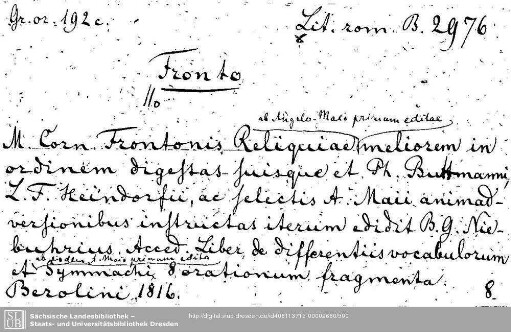 Gr. or. 192 c.
Lit. rom. B. 2976
8
Fronto
ab Angelo Maio primum editae
M. Corn. Frontonis Reliquiae meliorem in
ordinem digestas suisque et Ph. Buttmanni,
L. F. Heindorfii, ac selectis A. Maii animad-
versionibus instructas iterum edidit B. G. Nie-
buhrius. Acced. Liber de differentiis vocabulorum
ab eodem A. Maio primum edita
et Symmachi 8 orationum fragmenta.
Berolini, 1816. 8.
SLUB
Sächsische Landesbibliothek –
Staats- und Universitätsbibliothek Dresden